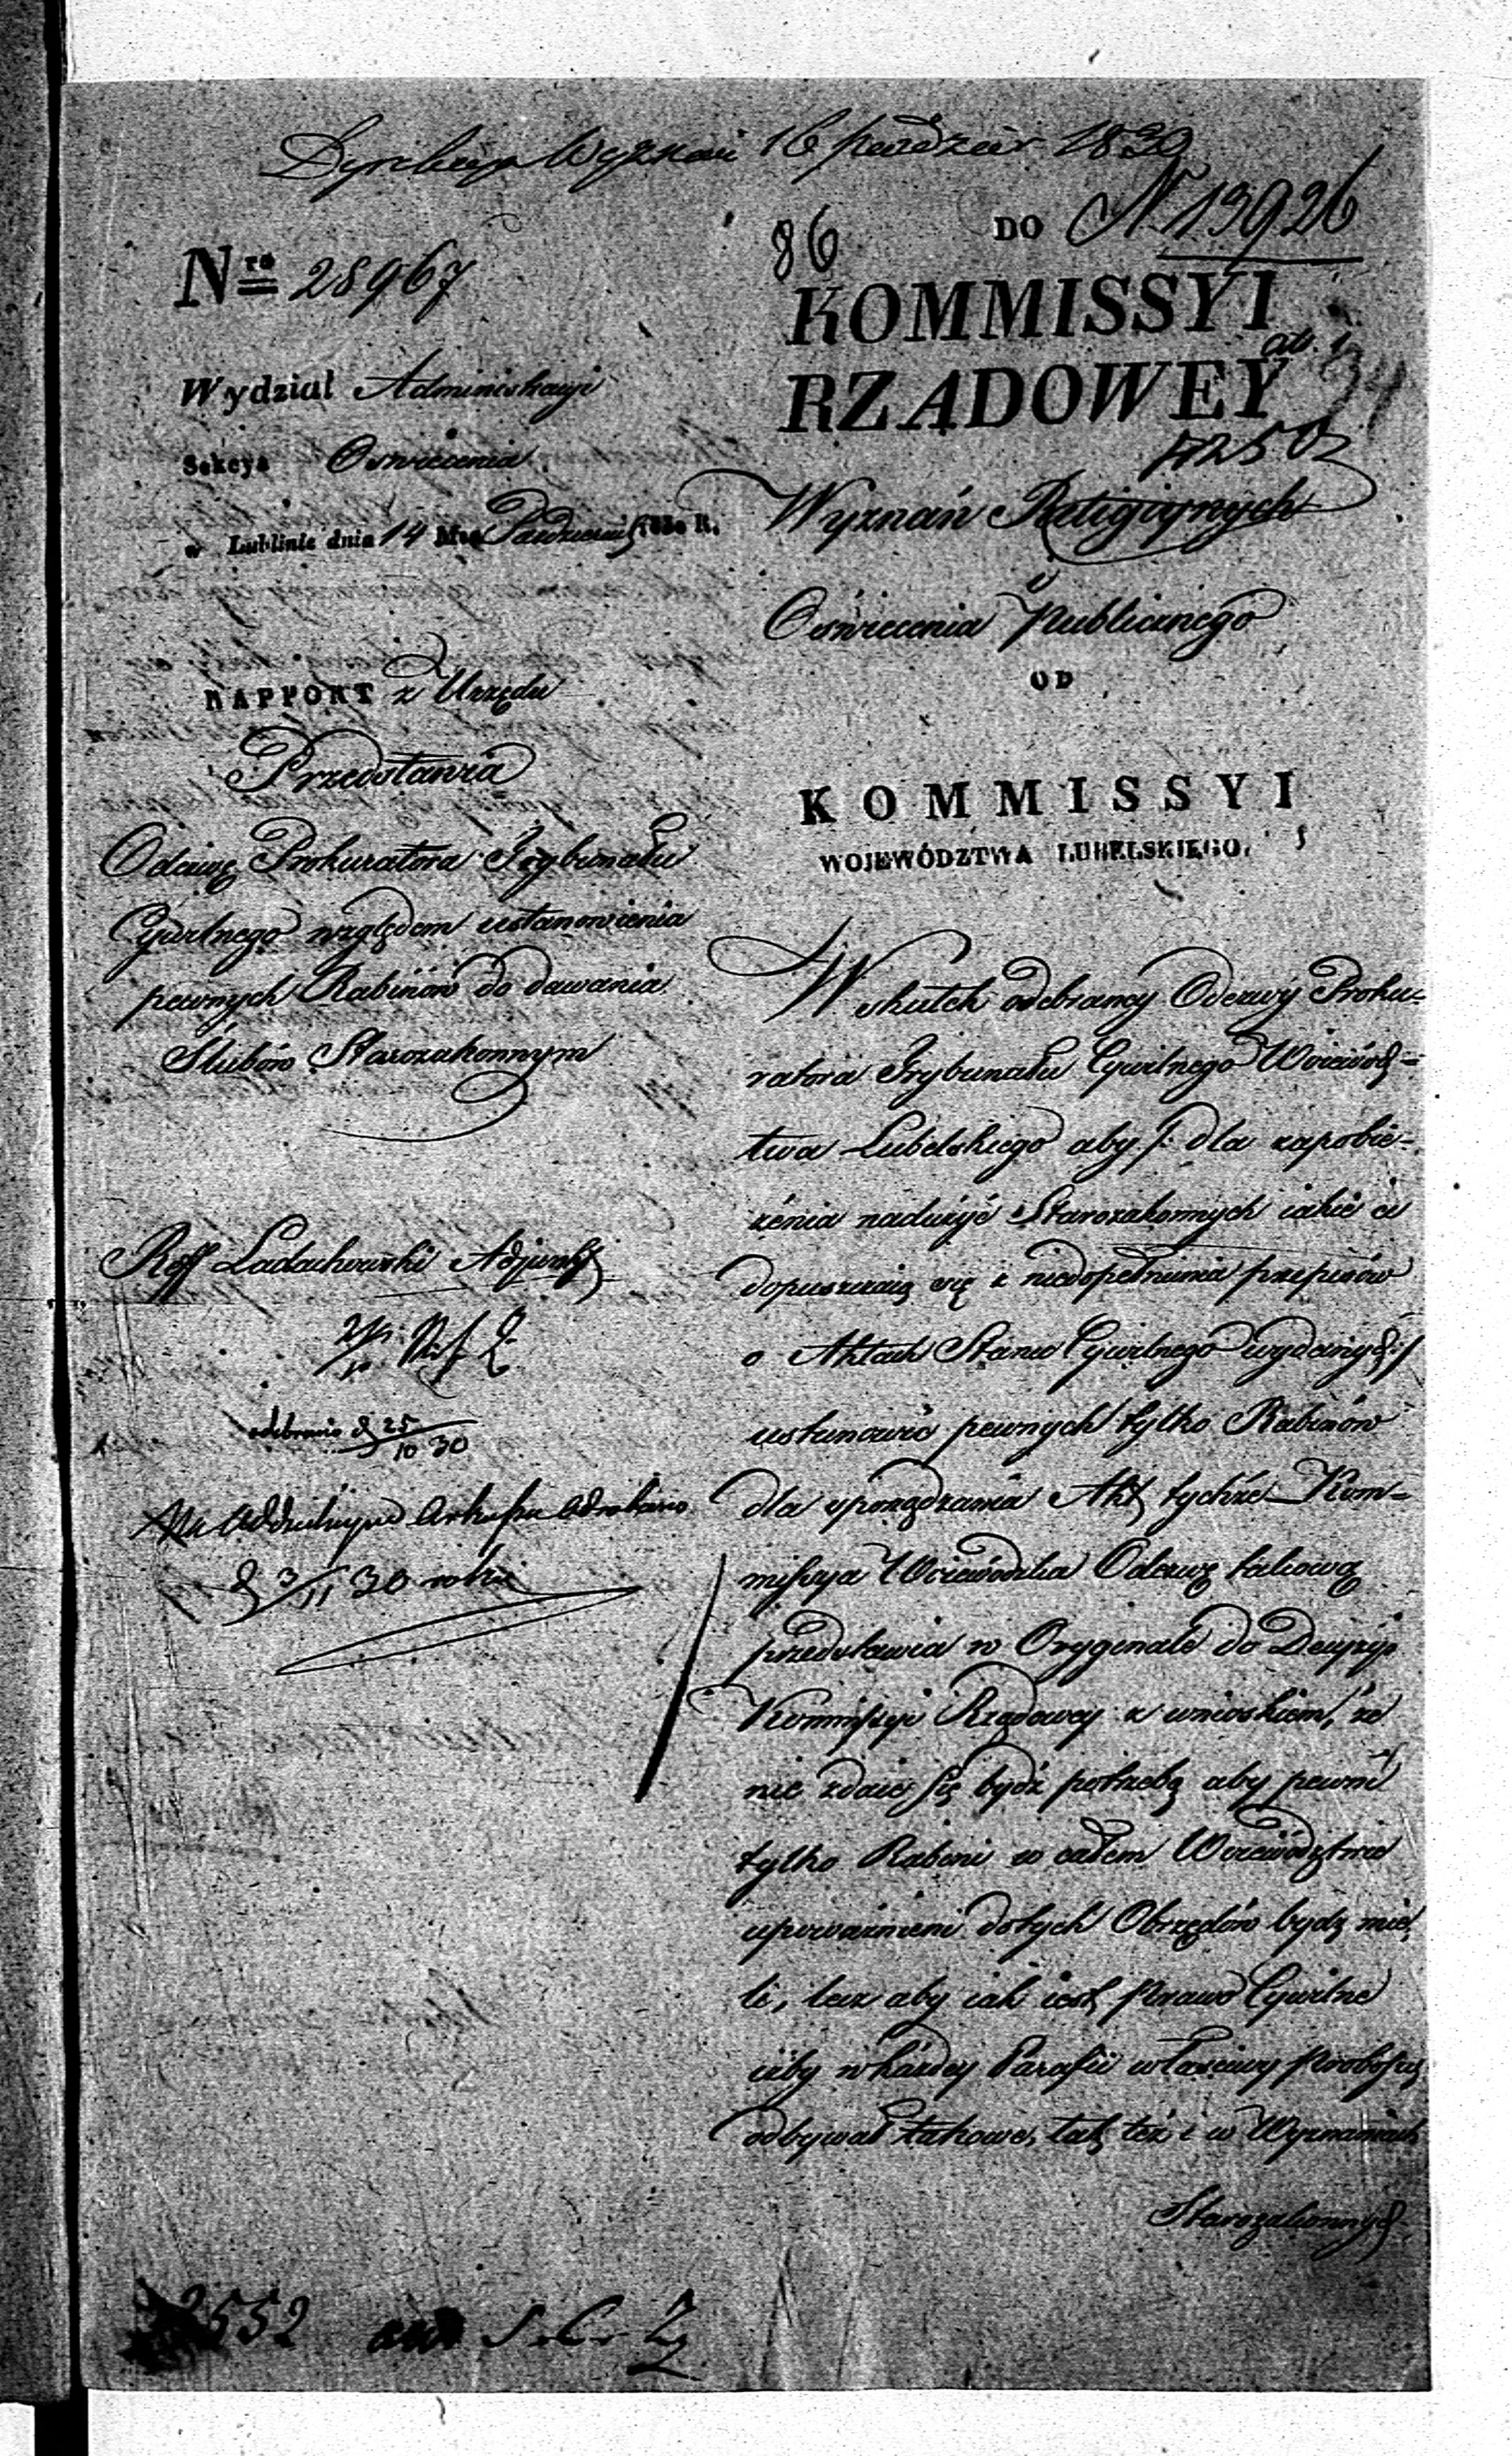 Dyrekcya Wyznań 16 paździer 1830
DO N 13926
86
Nro 28967
KOMMISSYI
RZĄDOWEY
34
Wydział Administracyi
Sekcya Oświecenia
w Lublinie dnia 14 Mca Październ 1830 R.
Wyznań Religijnych
i
Oświecenia Publicznego
OD
KOMMISSYI
WOJEWÓDZTWA LUBELSKIEGO.
RAPPORT z Urzędu
Przedstawia
Odezwę Prokuratora Trybunału
Cywilnego względem ustanowienia
pewnych Rabinów do dawania
Ślubów Starozakonnym
Reff Ladachowski Adjunkt
odebrano d 25/10 30
Na oddzielnym Arkuszu odrobiono
d 3/11 30 roku
W skutek odebraney Odezwy Proku=
ratora Trybunału Cywilnego Wojewódz=
twa Lubelskiego aby /: dla zapobie=
żenia nadużyć Starozakonnych iakie ci
dopuszczaią się z niedopełnienia przepisów
o Aktach Stanu Cywilnego wydanych :/
ustanowić pewnych tylko Rabinów
dla sporządzania Akt tychże Kom=
missya Woiewódzka Odezwę takową
przedstawia w Oryginale do Decyzyi
Kommissyi Rządowey z wnioskiem, że
nie zdaie się bydź potrzebą aby pewni
tylko Rabini w całem Woiewództwie
upoważnieni do tych Obrzędów bydź mie=
li, lecz aby iak iest Prawo Cywilne
iżby w każdey Parafii właściwy Proboszcz
odbywał takowe, tak też i w Wyznaniach
Starozakonnych
2552